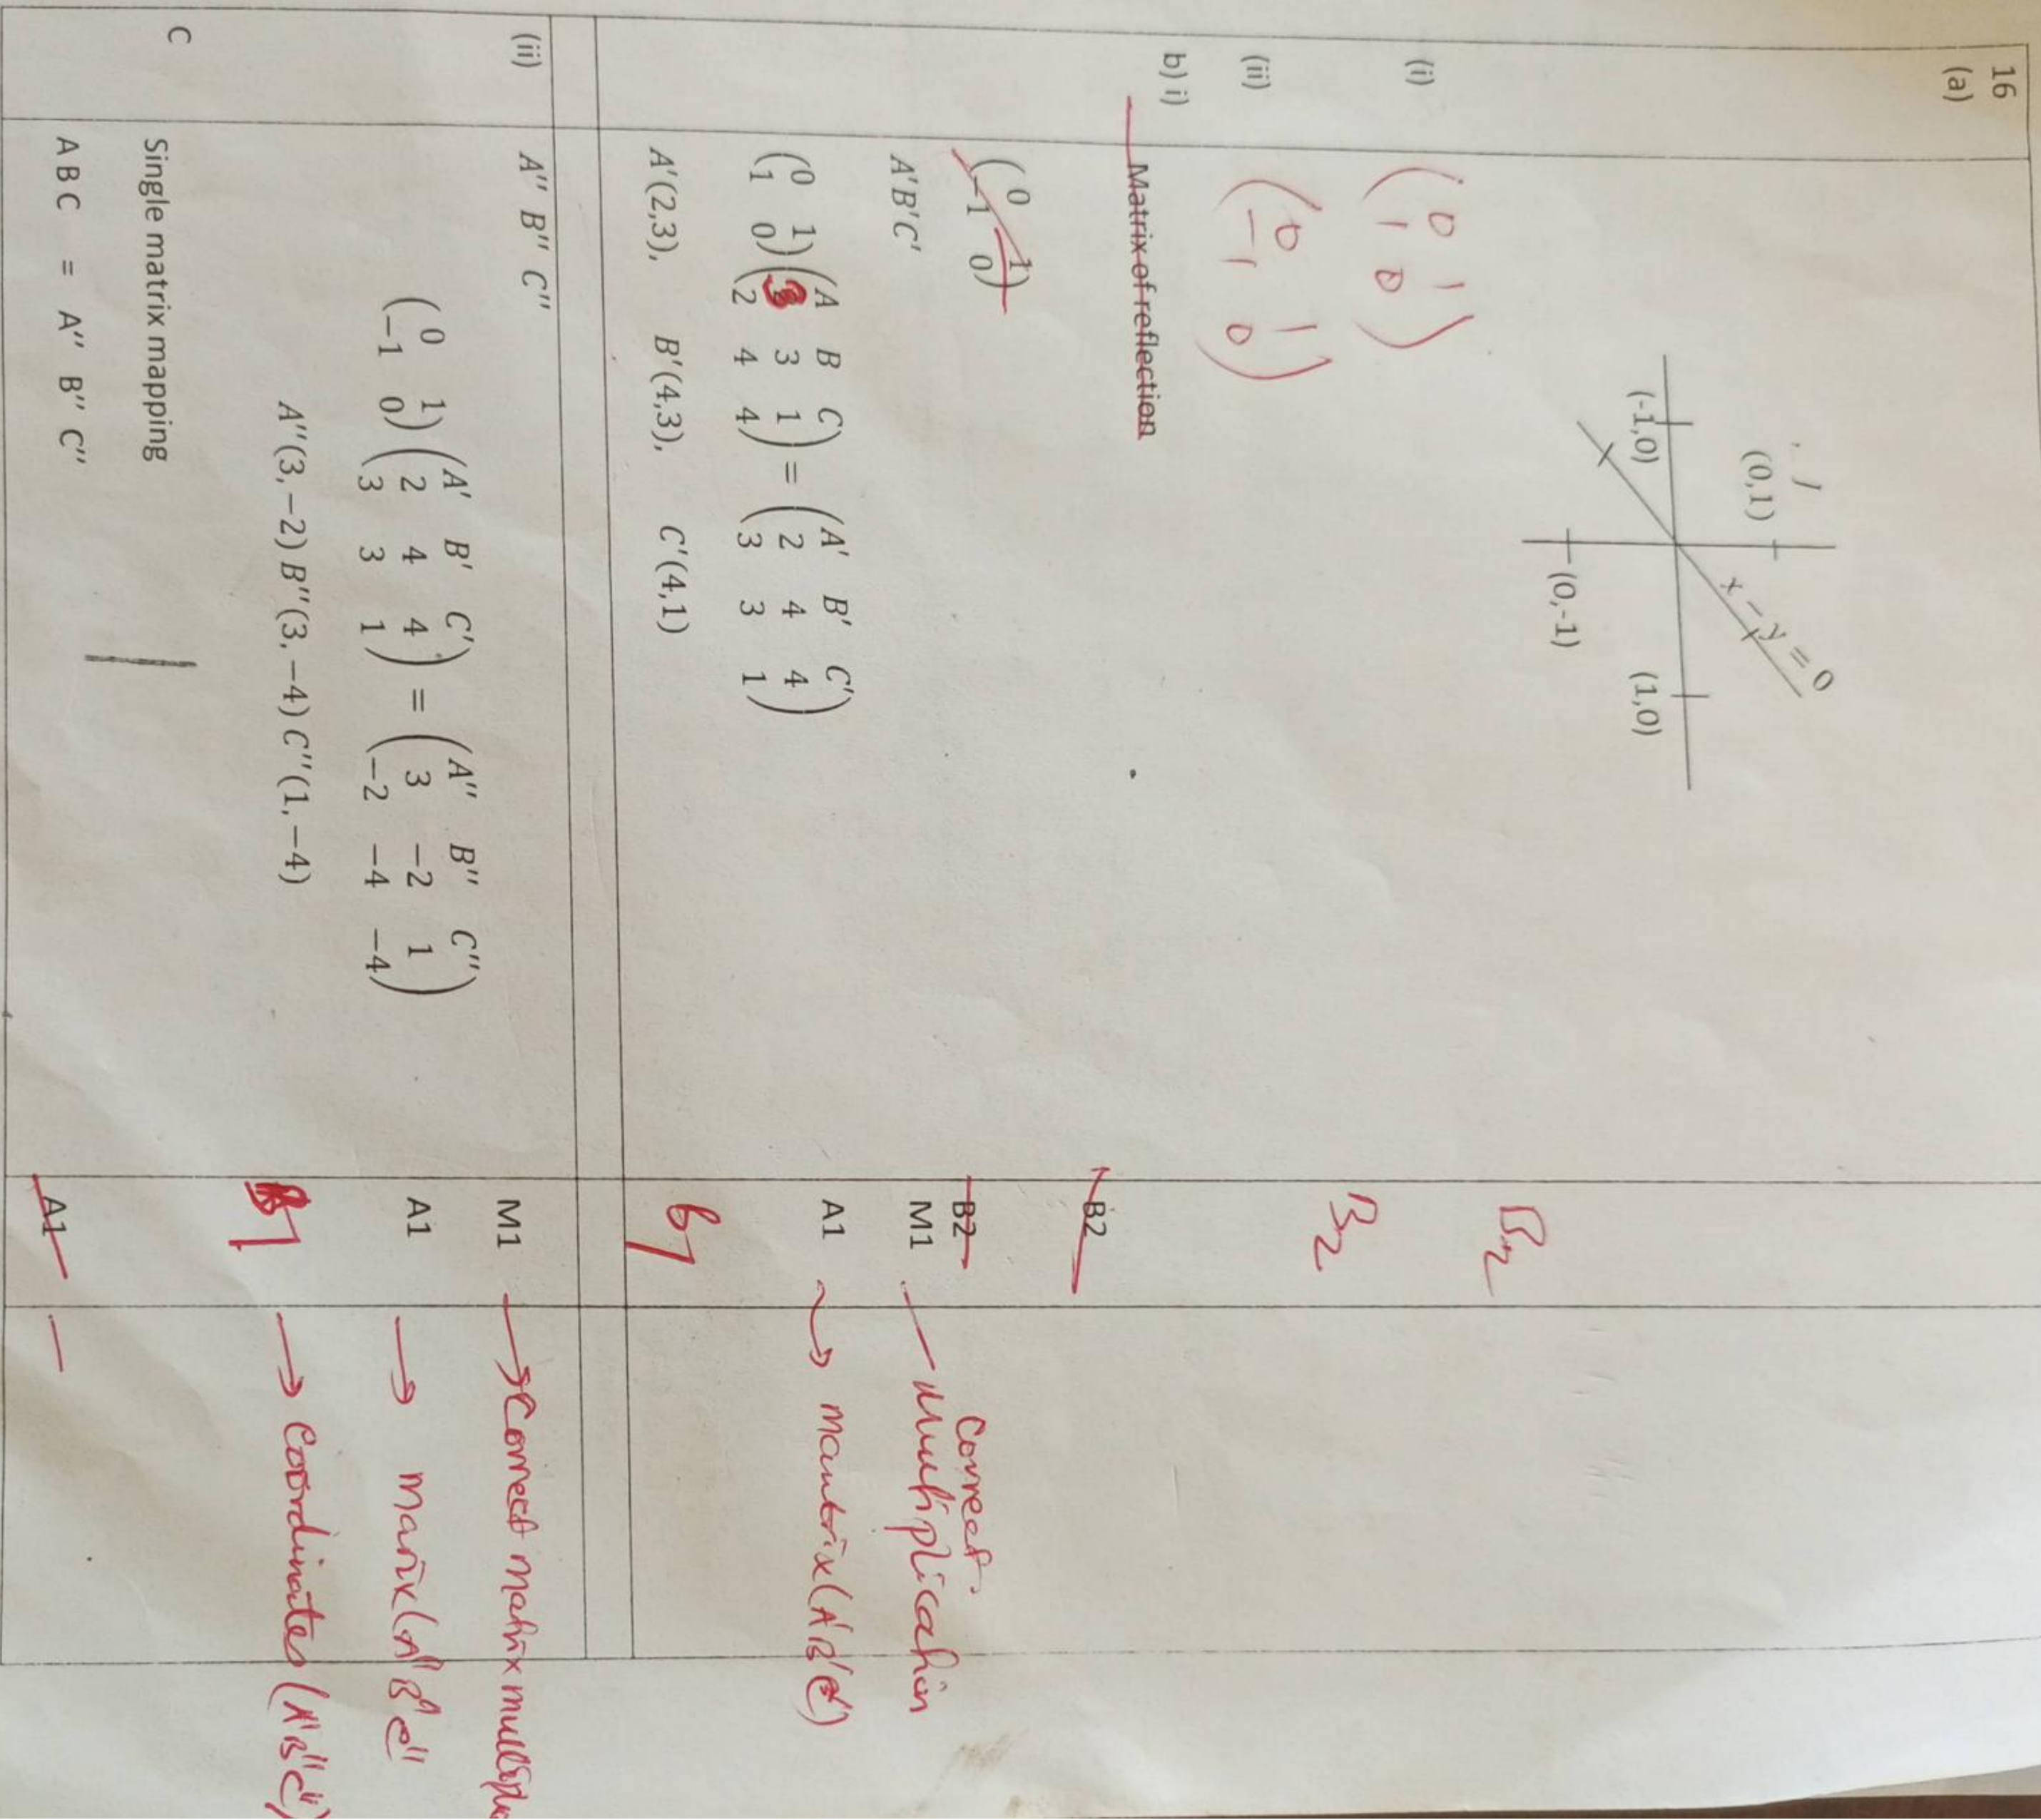 16
(a)
(0,1)
x − y = 0
(-1,0) (1,0)
(0,-1)
B2
(i) (0 1
1 0)
B2
(ii) (0 1
−1 0)
b) i) Matrix of reflection B2
(0 1
−1 0) B2
A'B'C' M1 Correct
Multiplication
(0 1
1 0)
(A B C
3 3 1
2 4 4) = (A' B' C'
2 4 4
3 3 1) A1 → matrix (A'B'C')
A'(2,3), B'(4,3), C'(4,1) B1
(ii) A'' B'' C'' M1 → Correct matrix
(0 1
−1 0)
(A' B' C'
2 4 4
3 3 1) = (A'' B'' C''
3 −2 1
−2 −4 −4) A1 → marix (A''B''C''
A''(3,−2) B''(3,−4) C''(1,−4) B1 → Coordinates (A''B''C'')
C Single matrix mapping
A B C = A'' B'' C'' A1